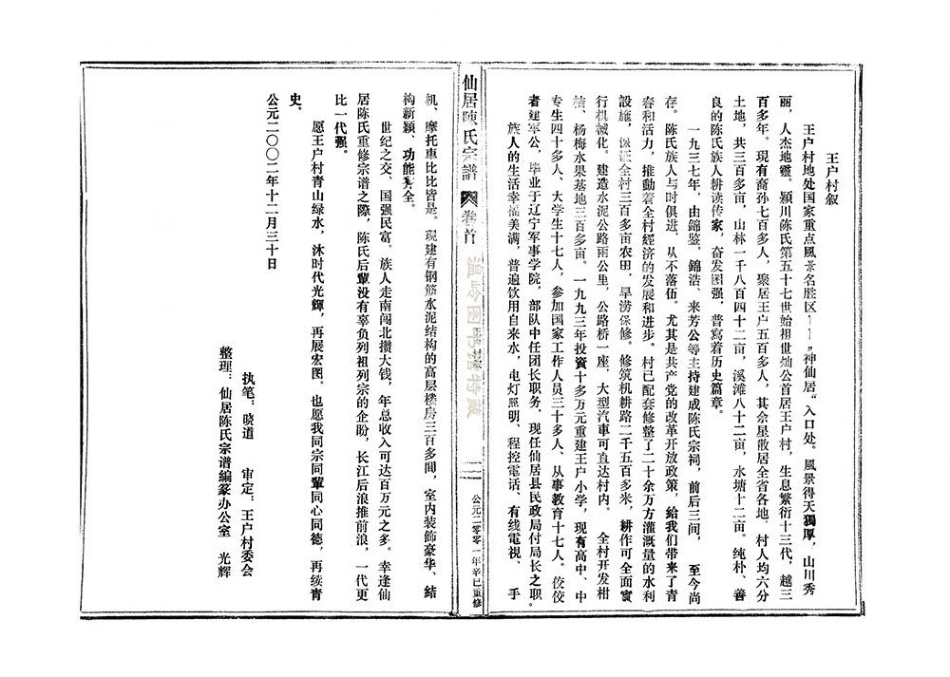 王户村叙
王户村地处国家重点風景名胜区——“神仙居”入口处。風景得天獨厚，山川秀
丽，人杰地靈。颍川陈氏第五十七世始祖世灿公首居王户村，生息繁衍十三代，越三
百多年。現有裔孙七百多人，聚居王户五百多人，其余星散居全省各地，村人均六分
土地，共三百多亩，山林一千八百四十二亩，溪滩八十二亩，水塘十二亩。纯朴、善
良的陈氏族人耕读传家，奋发图强，普寫着历史篇章。
一九三七年，由錦鑒、錦浩、来芳公等主持建成陈氏宗祠，前后三间，至今尚
存。陈氏族人与时俱进，从不落伍。尤其是共产党的改革开放政策，給我们带来了青
春和活力，推動着全村經济的发展和进步。村已配套修整了二十余方方灌溉量的水利
設施，保証全村三百多亩农田，旱涝保修。修筑机耕路二千五百多米，耕作可全面實
行机械化。建造水泥公路兩公里，公路桥一座，大型汽車可直达村内。全村开发柑
桔、杨梅水果基地三百多亩。一九九三年投資十多万元重建王户小学，現有高中、中
专生四十多人、大学生十七人，参加国家工作人员三十多人、从事教育十七人。佼佼
者建军公，毕业于辽宁军事学院，部队中任团长职务，现任仙居县民政局付局长之职。
族人的生活幸福美满，普遍饮用自来水，电灯照明、程控電话、有线電視、手
仙居陳氏宗譜
卷首
公元二零零一年辛巳重修
机、摩托車比比皆是。現建有钢筋水泥结构的高层楼房三百多間，室内装飾豪华、結
构新颖、功能齐全。
世纪之交、国强民富。族人走南闯北攒大钱，年总收入可达百万元之多。幸逢仙
居陈氏重修宗谱之際，陈氏后輩没有辜负列祖列宗的企盼，长江后浪推前浪，一代更
比一代强。
愿王户村青山绿水，沐时代光輝，再展宏图。也愿我同宗同輩同心同德，再续青
史。
公元二〇〇二年十二月三十日
执笔：晓道　审定：王户村委会
整理：仙居陈氏宗谱编篆办公室　光辉